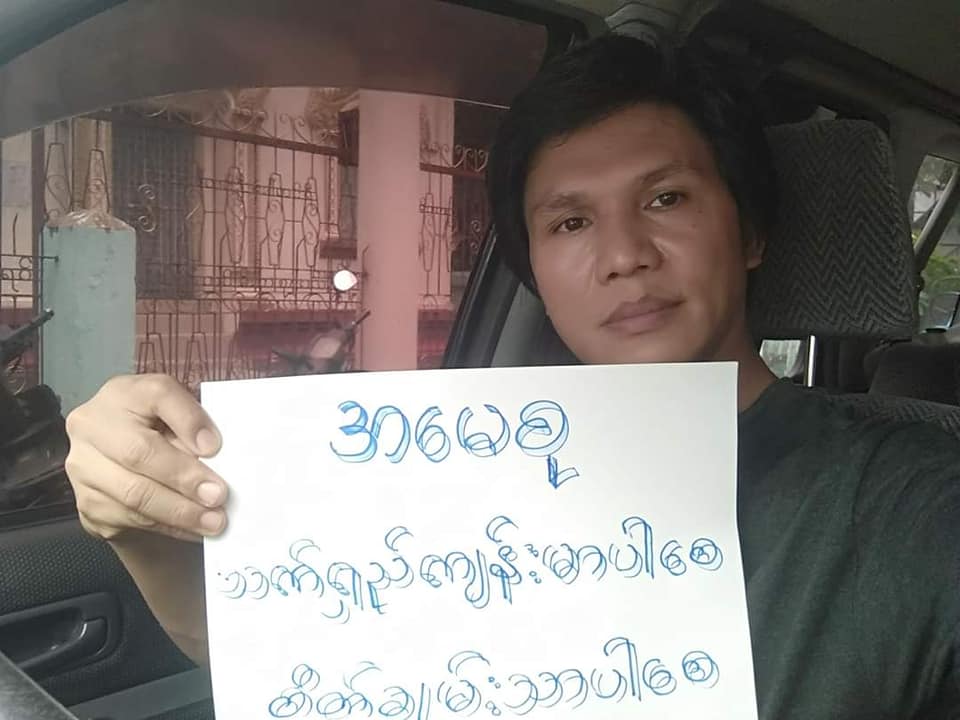 အမေစု
သက်ရှည်ကျန်းမာပါစေ
စိတ်ချမ်းသာပါစေ